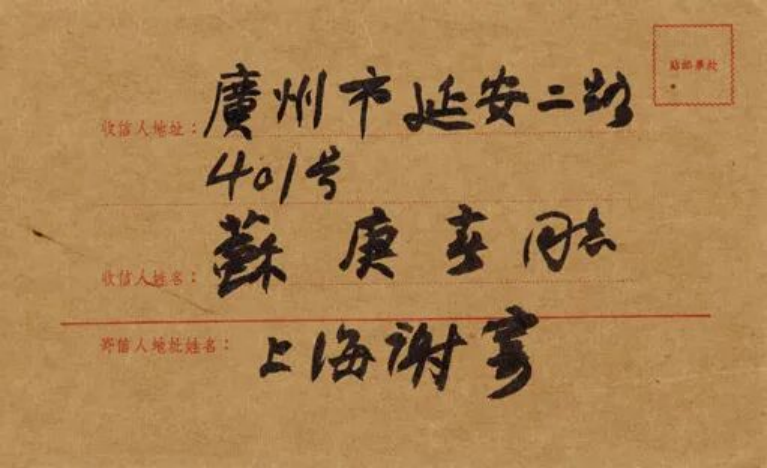 贴邮票处
收信人地址：廣州市延安二路
401号
收信人姓名：蘇庚春同志
寄信人地址姓名：上海谢寄